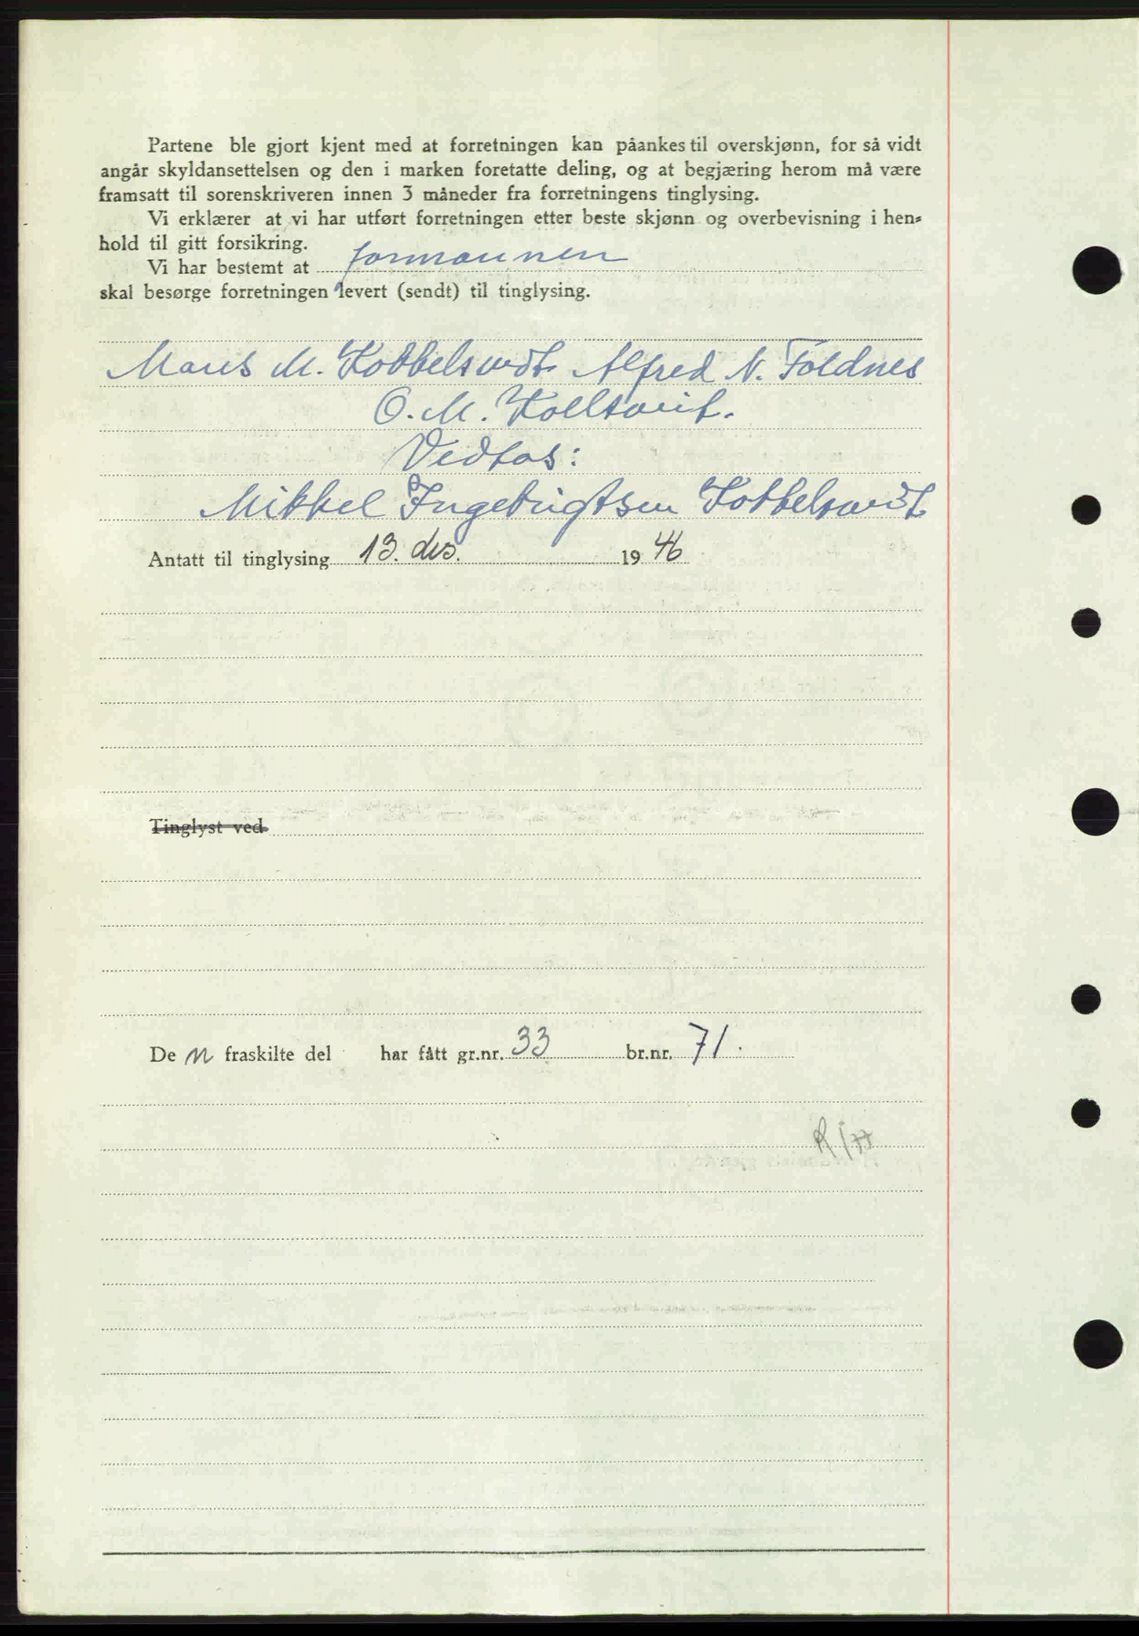 Partene ble gjort kjent med at forretningen kan påankes til overskjønn, for så vidt
angår skyldansettelsen og den i marken foretatte deling, og at begjæring herom må være
framsatt til sorenskriveren innen 3 måneder fra forretningens tinglysing.
Vi erklærer at vi har utført forretningen etter beste skjønn og overbevisning i hen-
hold til gitt forsikring.
Vi har bestemt at formannen
skal besørge forretningen levert (sendt) til tinglysing.
Mons M. Kobbelsvedt. Alfred N. Foldnes
O. M. Kolltveit.
Vedtas:
Mikkel Ingebrigtsen Kobbelsvedt
Antatt til tinglysing 13. des. 1946
Tinglyst ved
De n fraskilte del har fått gr.nr. 33 br.nr. 71.